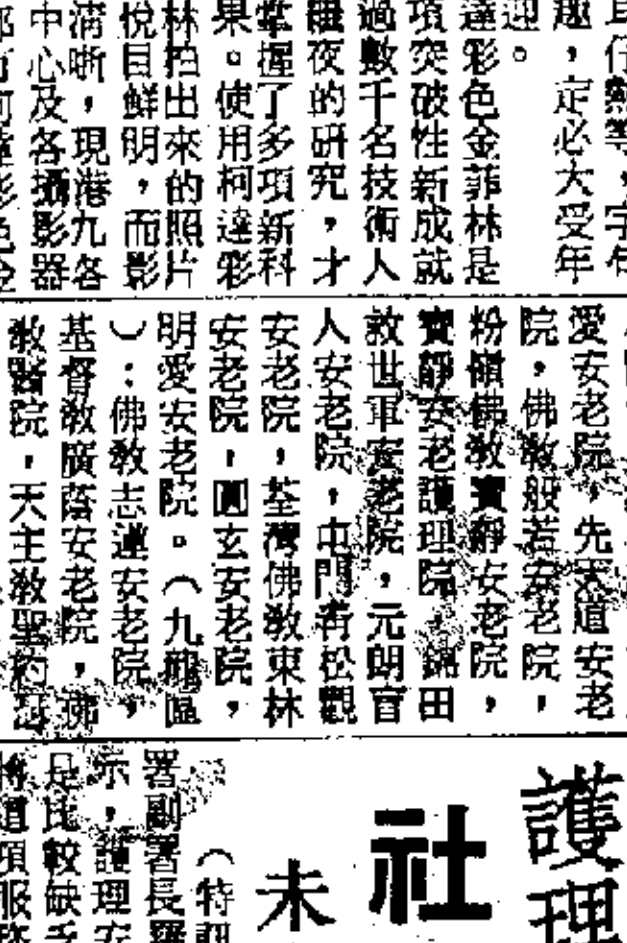 耳仔熱等，字句
趣，定必大受年
迎。
達彩色金菲林是
項突破性新成就
過數千名技術人
夜的研究，才
掌握了多項新科
果。使用柯達彩
林拍出來的照片
悅目鮮明，而影
清晰，現港九各
中心及各攝影器
愛安老院，先天道安老
院，佛教般若安老院，
粉嶺佛教寶靜安老院，
寶靜安老護理院，錦田
救世軍安老院，元朗盲
人安老院，屯門青松觀
安老院，荃灣佛教東林
安老院，圓玄安老院，
明愛安老院。（九龍區
）：佛教志蓮安老院，
基督教廣蔭安老院，佛
教醫院，天主教聖約瑟
護理
社
未
（特訊
署副署長羅
示，護理安
是比較缺乏
將這項服務